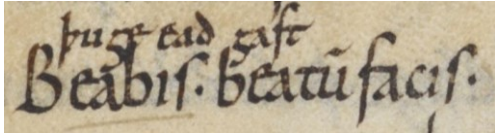 þu ge ead gast
Beabis. beatū facis.